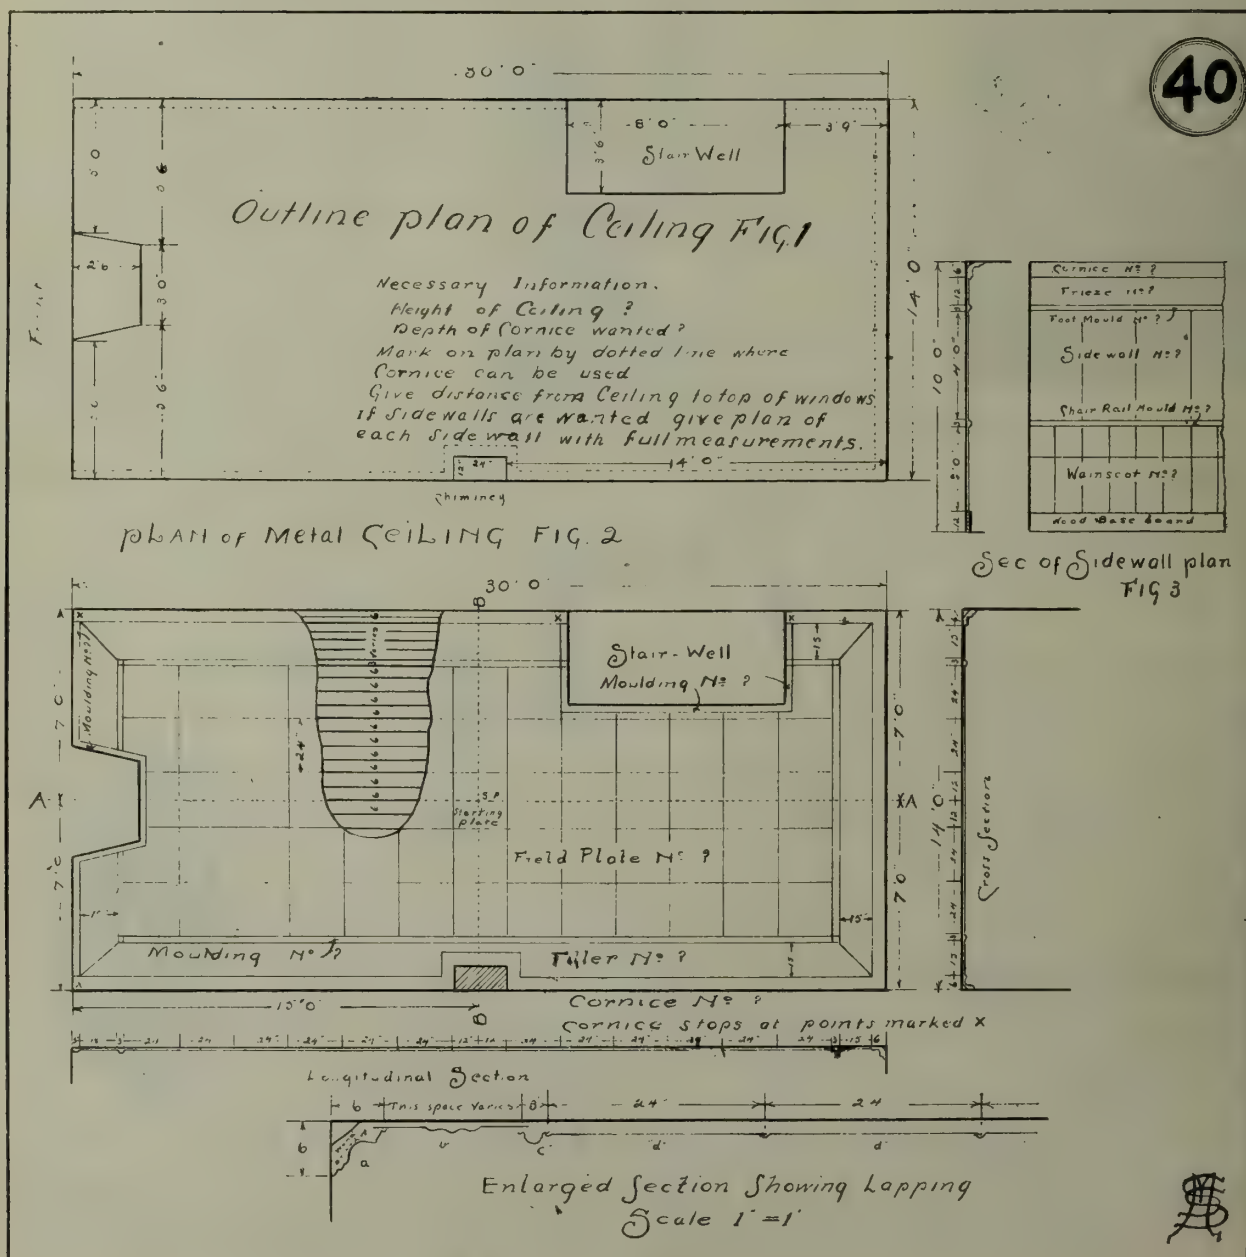 40
30' 0"
8' 0"
3' 9"
3' 6"
Stair Well
Outline plan of Ceiling FIG. 1
2' 6"
3' 0"
14' 0"
Necessary Information.
Height of Ceiling ?
Depth of Cornice wanted ?
Mark on plan by dotted line where
Cornice can be used
Give distance from Ceiling to top of windows
If Sidewalls are wanted give plan of
each Side wall with full measurements.
12" 24"
14' 0"
Chiminey
10' 0"
Cornice No ?
Frieze No ?
Foot Mould No ?
Side wall No ?
Chair Rail Mould No ?
Wainscot No ?
Wood Base board
Sec of Sidewall plan
FIG 3
PLAN of Metal CEILING FIG. 2
30' 0"
B
Moulding No ?
Stair-Well
Moulding No ?
7' 0"
7' 0"
24"
A
A
S.P.
Starting plate
Field Plate No ?
14' 0"
Cross Section
7' 0"
7' 0"
15"
Moulding No ?
Filler No ?
15' 0"
B
Cornice No ?
Cornice stops at points marked X
24 24 24 24 12 12 24 24 24 24 24 24 3 15 6
Longitudinal Section
6 This space varies 3 24 24
6
a
c
d
d
Enlarged Section Showing Lapping
Scale 1" = 1'